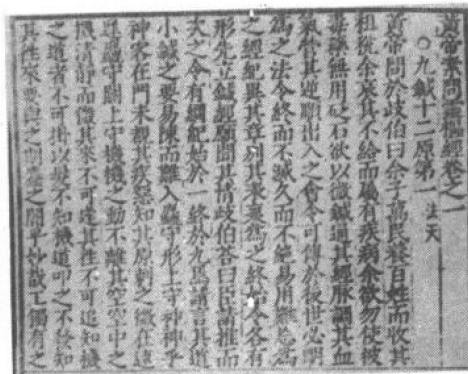 黃帝素問靈樞經卷之一
○九鍼十二原第一 法天
黃帝問於歧伯曰余子萬民養百姓而收其
租稅余哀其不給而屬有疾病余欲勿使被
毒藥無用砭石欲以微鍼通其經脉調其血
氣營其逆順出入之會令可傳於後世必明
爲之法令終而不滅久而不絕易用難忘爲
之經紀異其章別其表裏爲之終始令各有
形先立鍼經願聞其情歧伯答曰臣請推而
次之令有綱紀始於一終於九焉請言其道
小鍼之要易陳而難入麤守形上守神神乎
神客在門未覩其疾惡知其原刺之微在速
遲麤守關上守機機之動不離其空空中之
機清靜而微其來不可逢其往不可追知機
之道者不可掛以髮不知機道叩之不發知
其往來要與之期麤之闇乎妙哉工獨有之